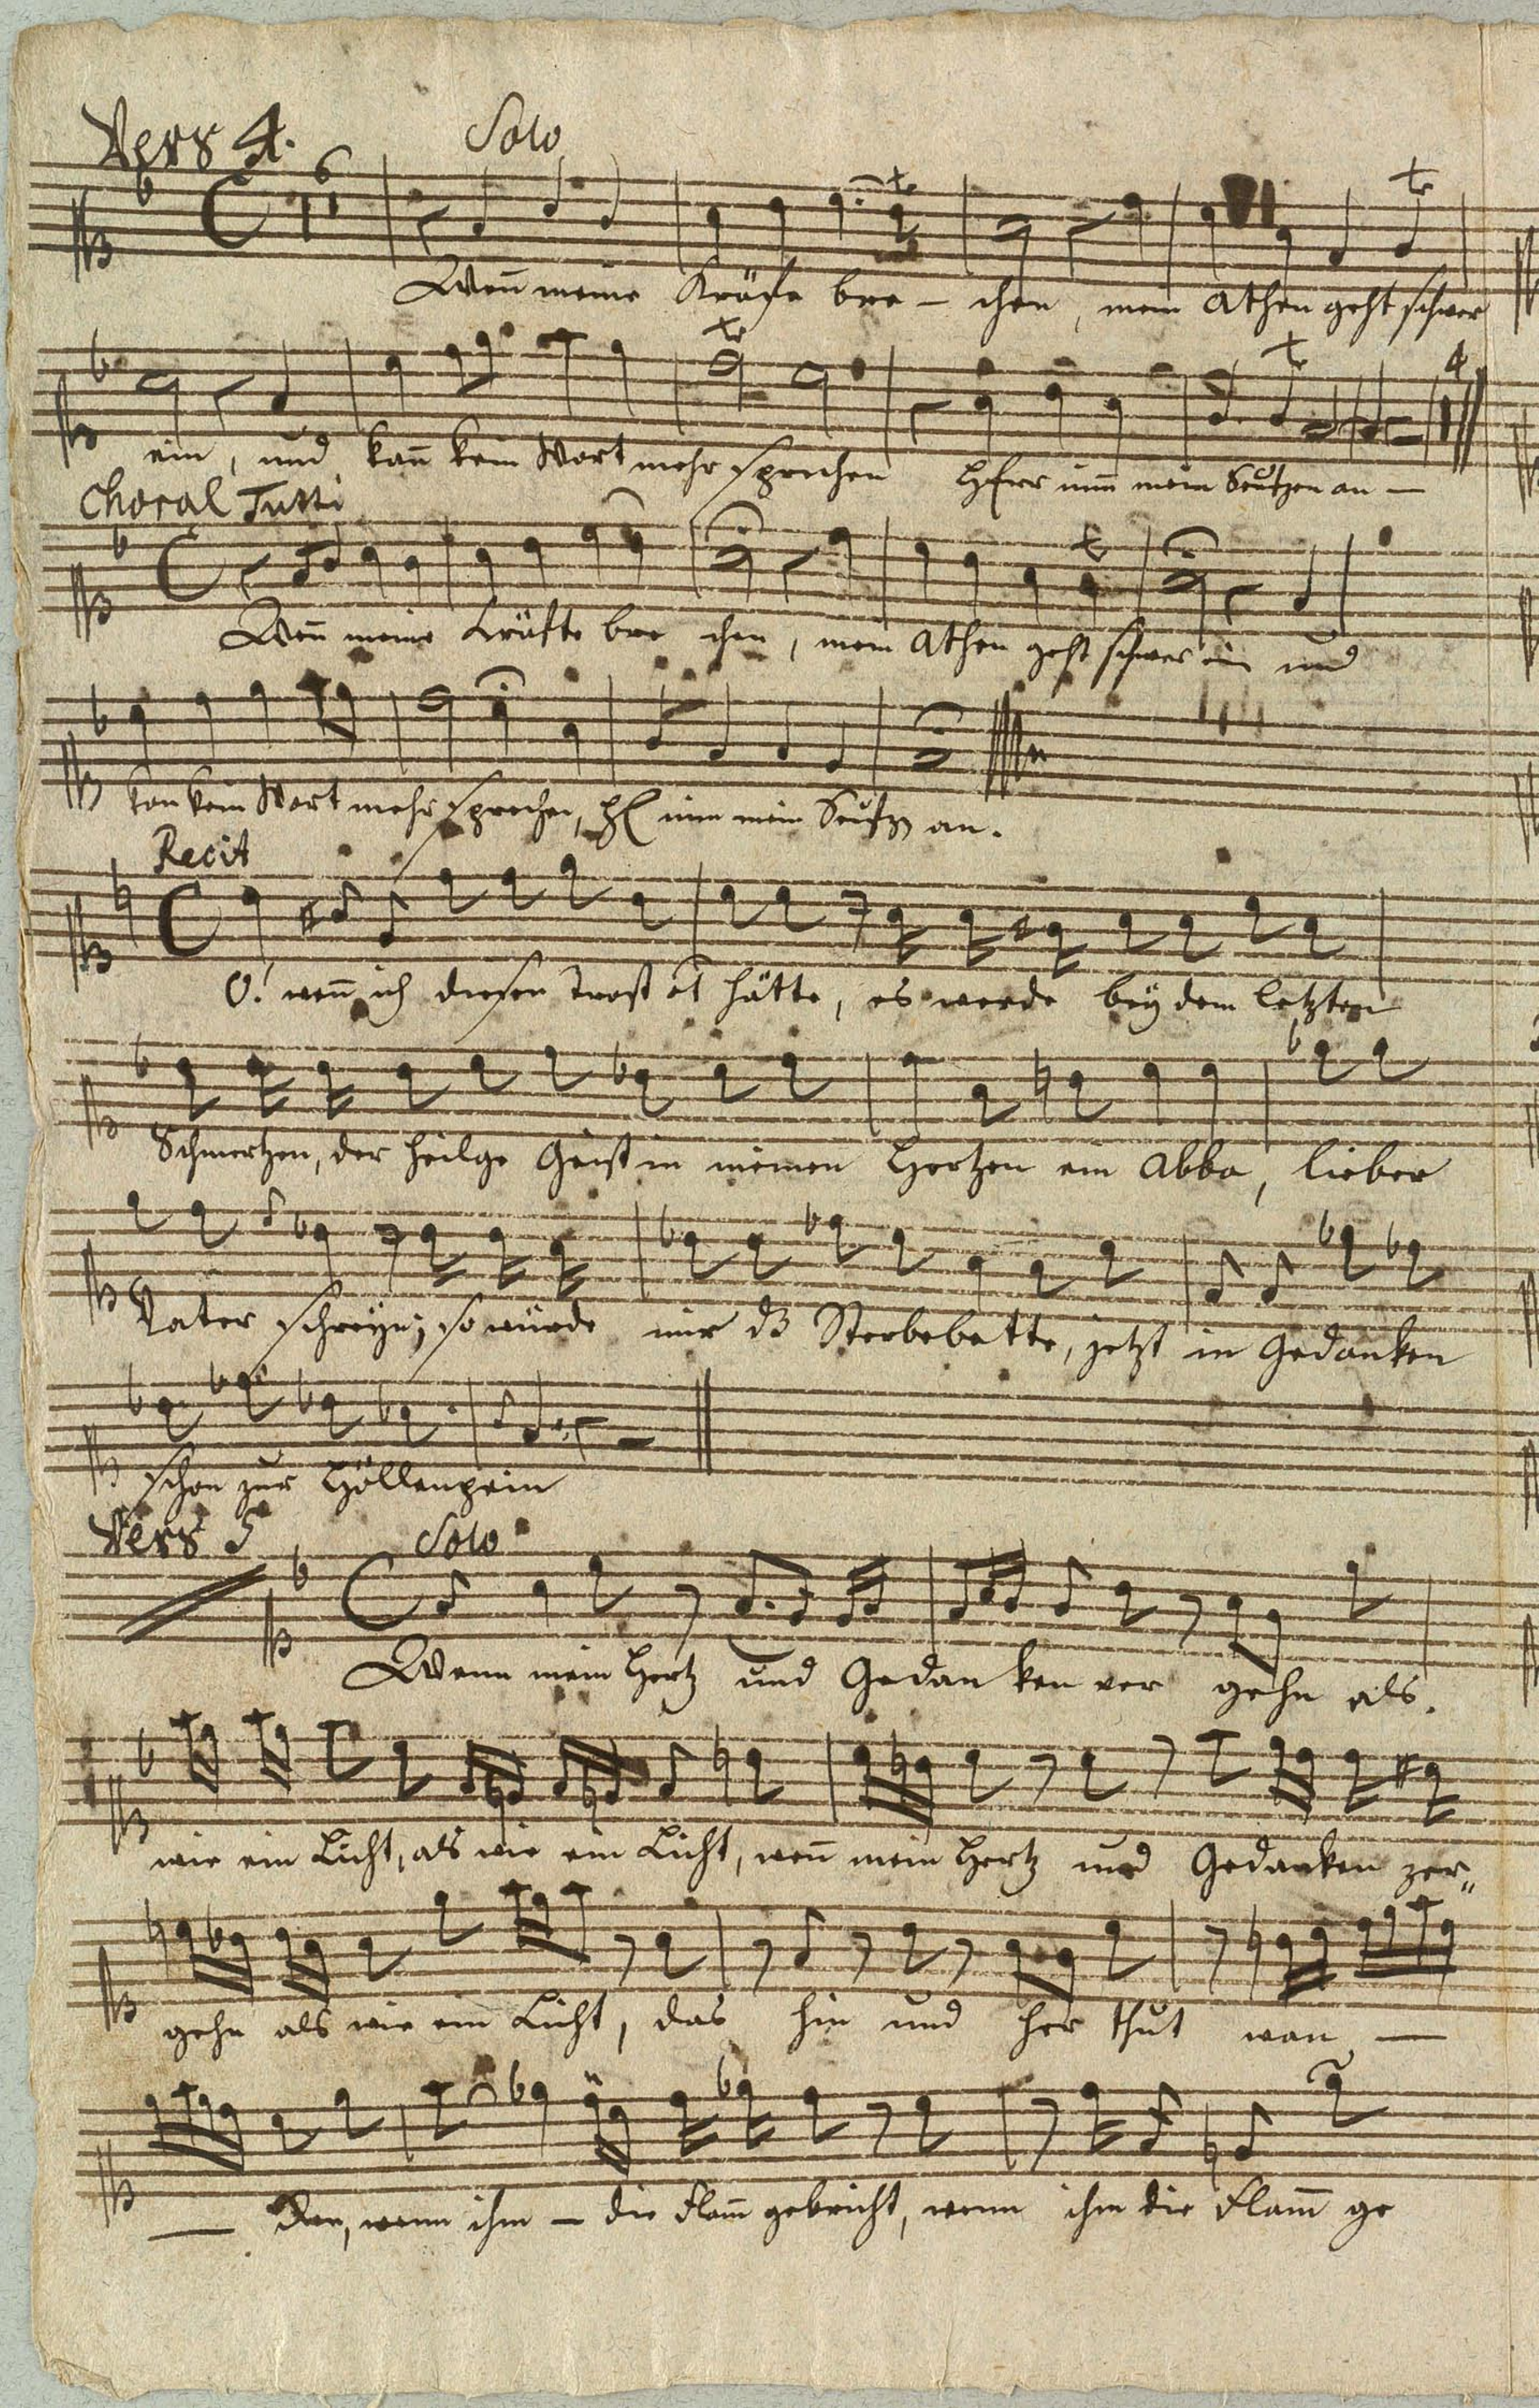 Vers 4. Solo
6
Weñ meine Kräfte bre – chen, mein Athen geht schwer
4
ein, und kañ kein Wort mehr sprechen HErr nim̃ mein Seufzen an –
Choral Tutti
Weñ meine Kräfte bre chen, mein Athen geht schwer ein und
kan kein Wort mehr sprechen, nim mein Seufzen an.
Recit
O! weñ ich diesen Trost hätte, es werde bey dem letzten
Schmertzen, der heilge Geist in meinen Hertzen ein Abba, lieber
Vater schreyn; so würde mir Sterbebette, jetzt in Gedanken
schon zur Höllenpein
Vers 5 Solo
Wenn mein Hertz und Gedan ken ver gehn als.
wie ein Licht, als wie ein Licht, weñ mein Hertz und Gedanken zer„
gehn als wie ein Licht, das hin und her thut wan –
– den, wenn ihm – die Flam̃ gebricht, wenn ihm die Flam̃ ge